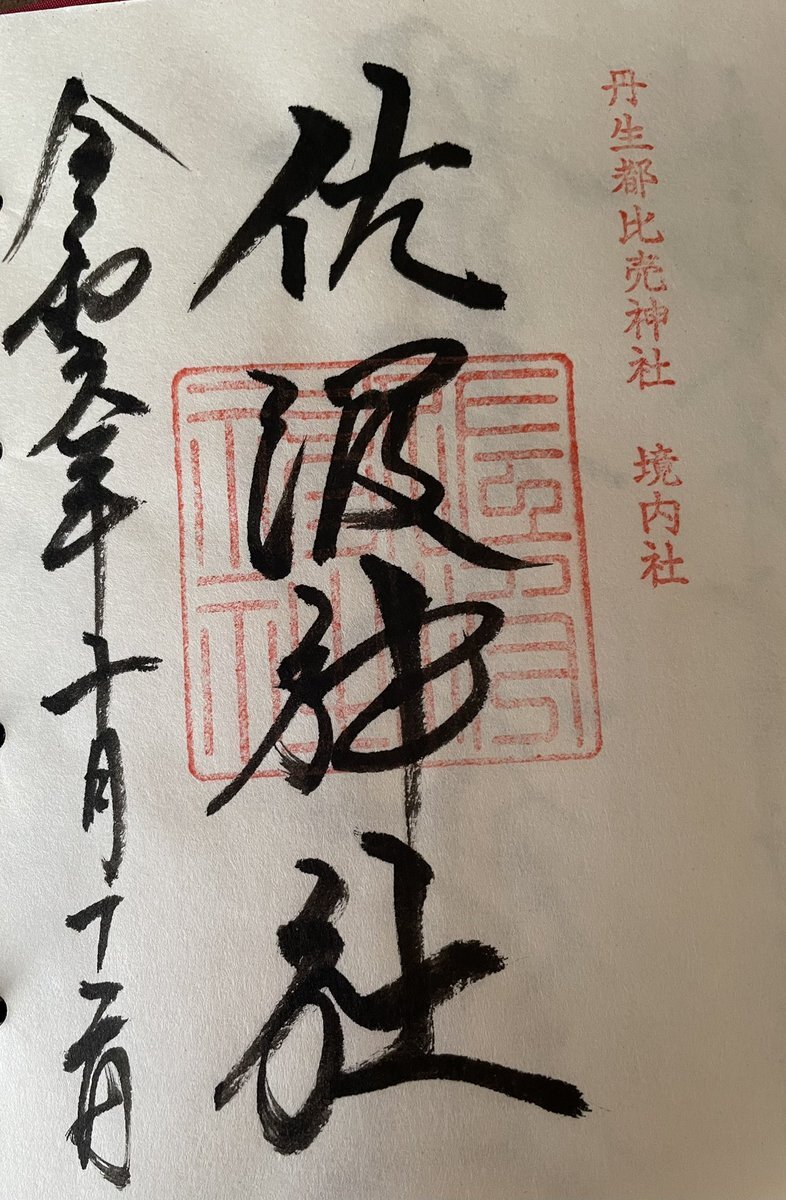 丹生都比売神社　境内社
佐波神社
令和六年十月十二日